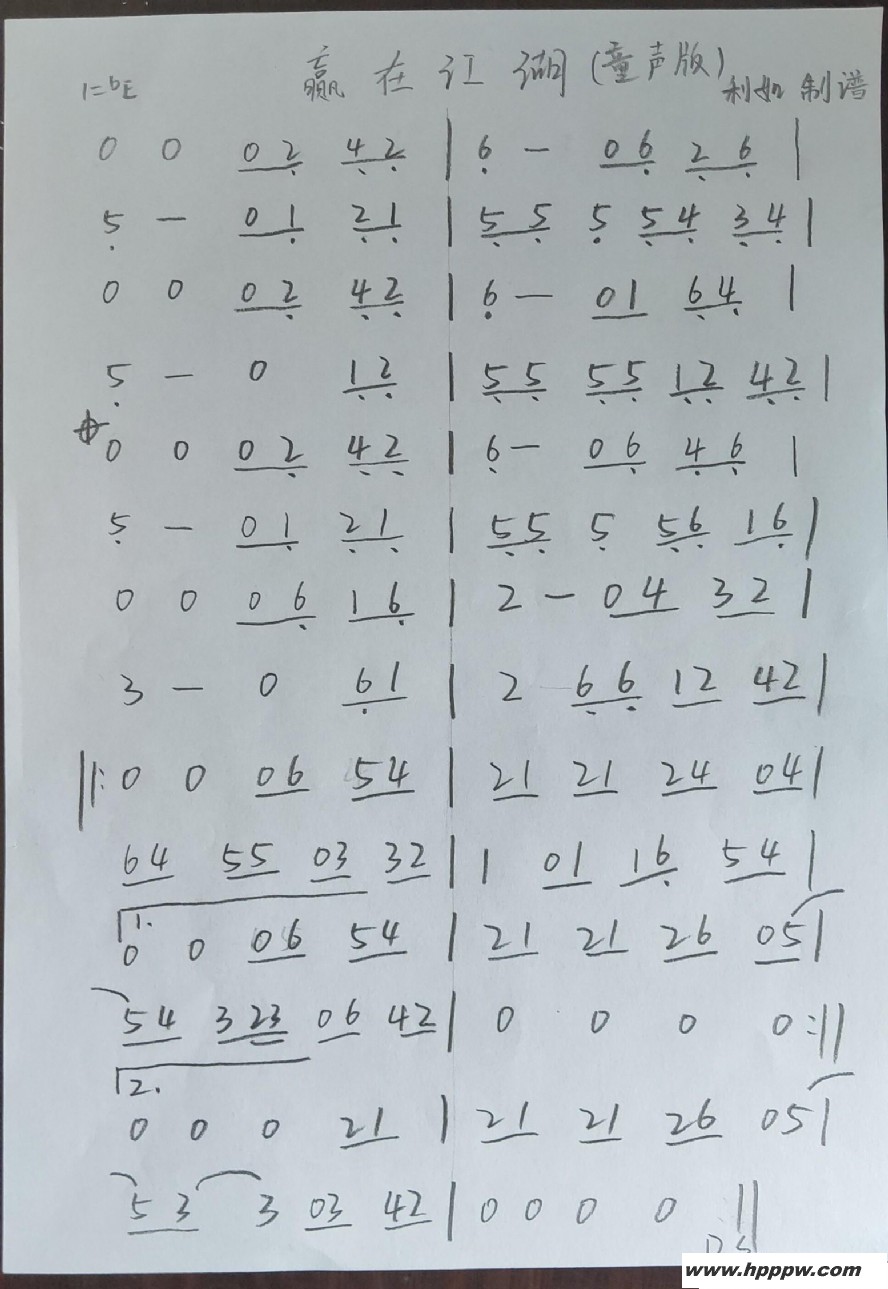 赢在江湖(童声版)
1=bE 利如 制谱
0 0 02 42 | 6 - 06 26 |
5 - 01 21 | 55 5 54 34 |
0 0 02 42 | 6 - 01 64 |
5 - 0 12 | 55 55 12 42 |
0 0 02 42 | 6 - 06 46 |
5 - 01 21 | 55 5 56 16 |
0 0 06 16 | 2 - 04 32 |
3 - 0 61 | 2 66 12 42 |
‖: 0 0 06 54 | 21 21 24 04 |
64 55 03 32 | 1 01 16 54 |
1.
0 0 06 54 | 21 21 26 05 |
54 323 06 42 | 0 0 0 0 :‖
2.
0 0 0 21 | 21 21 26 05 |
53 3 03 42 | 0 0 0 0 ‖
www.hpppw.com